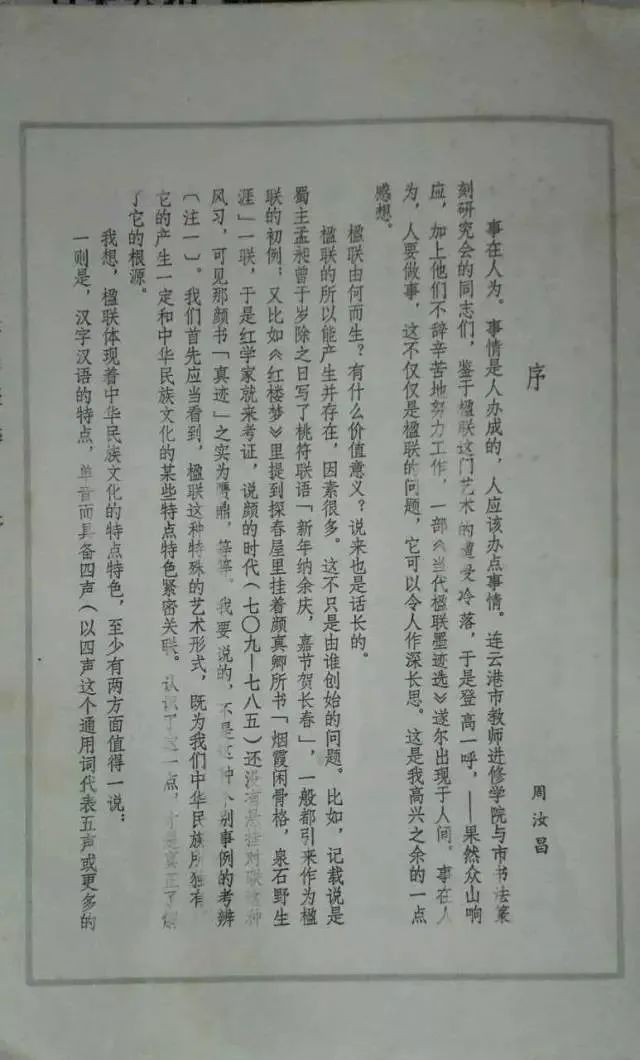 序
周汝昌
事在人为。事情是人办成的，人应该办点事情。连云港市教师进修学院与市书法篆
刻研究会的同志们，鉴于楹联这门艺术的遭受冷落，于是登高一呼，——果然众山响
应，加上他们不辞辛苦地努力工作，一部《当代楹联墨迹选》遂尔出现于人间。事在人
为，人要做事，这不仅仅是楹联的问题，它可以令人作深长思。这是我高兴之余的一点
感想。
楹联由何而生？有什么价值意义？说来也是话长的。
楹联的所以能产生并存在，因素很多。这不只是由谁创始的问题。比如，记载说是
蜀主孟昶曾于岁除之日写了桃符联语「新年纳余庆，嘉节贺长春」，一般都引来作为楹
联的初例；又比如《红楼梦》里提到探春屋里挂着颜真卿所书「烟霞闲骨格，泉石野生
涯」一联，于是红学家就来考证，说颜的时代（七〇九—七八五）还没有悬挂对联这种
风习，可见那颜书「真迹」之实为赝鼎，等等。我要说的，不是这种个别事例的考辨
〔注一〕。我们首先应当看到，楹联这种特殊的艺术形式，既为我们中华民族所独有，
它的产生一定和中华民族文化的某些特点特色紧密关联。认识了这一点，才是真正了解
了它的根源。
我想，楹联体现着中华民族文化的特点特色，至少有两方面值得一说：
一则是，汉字汉语的特点，单音而具备四声（以四声这个通用词代表五声或更多的